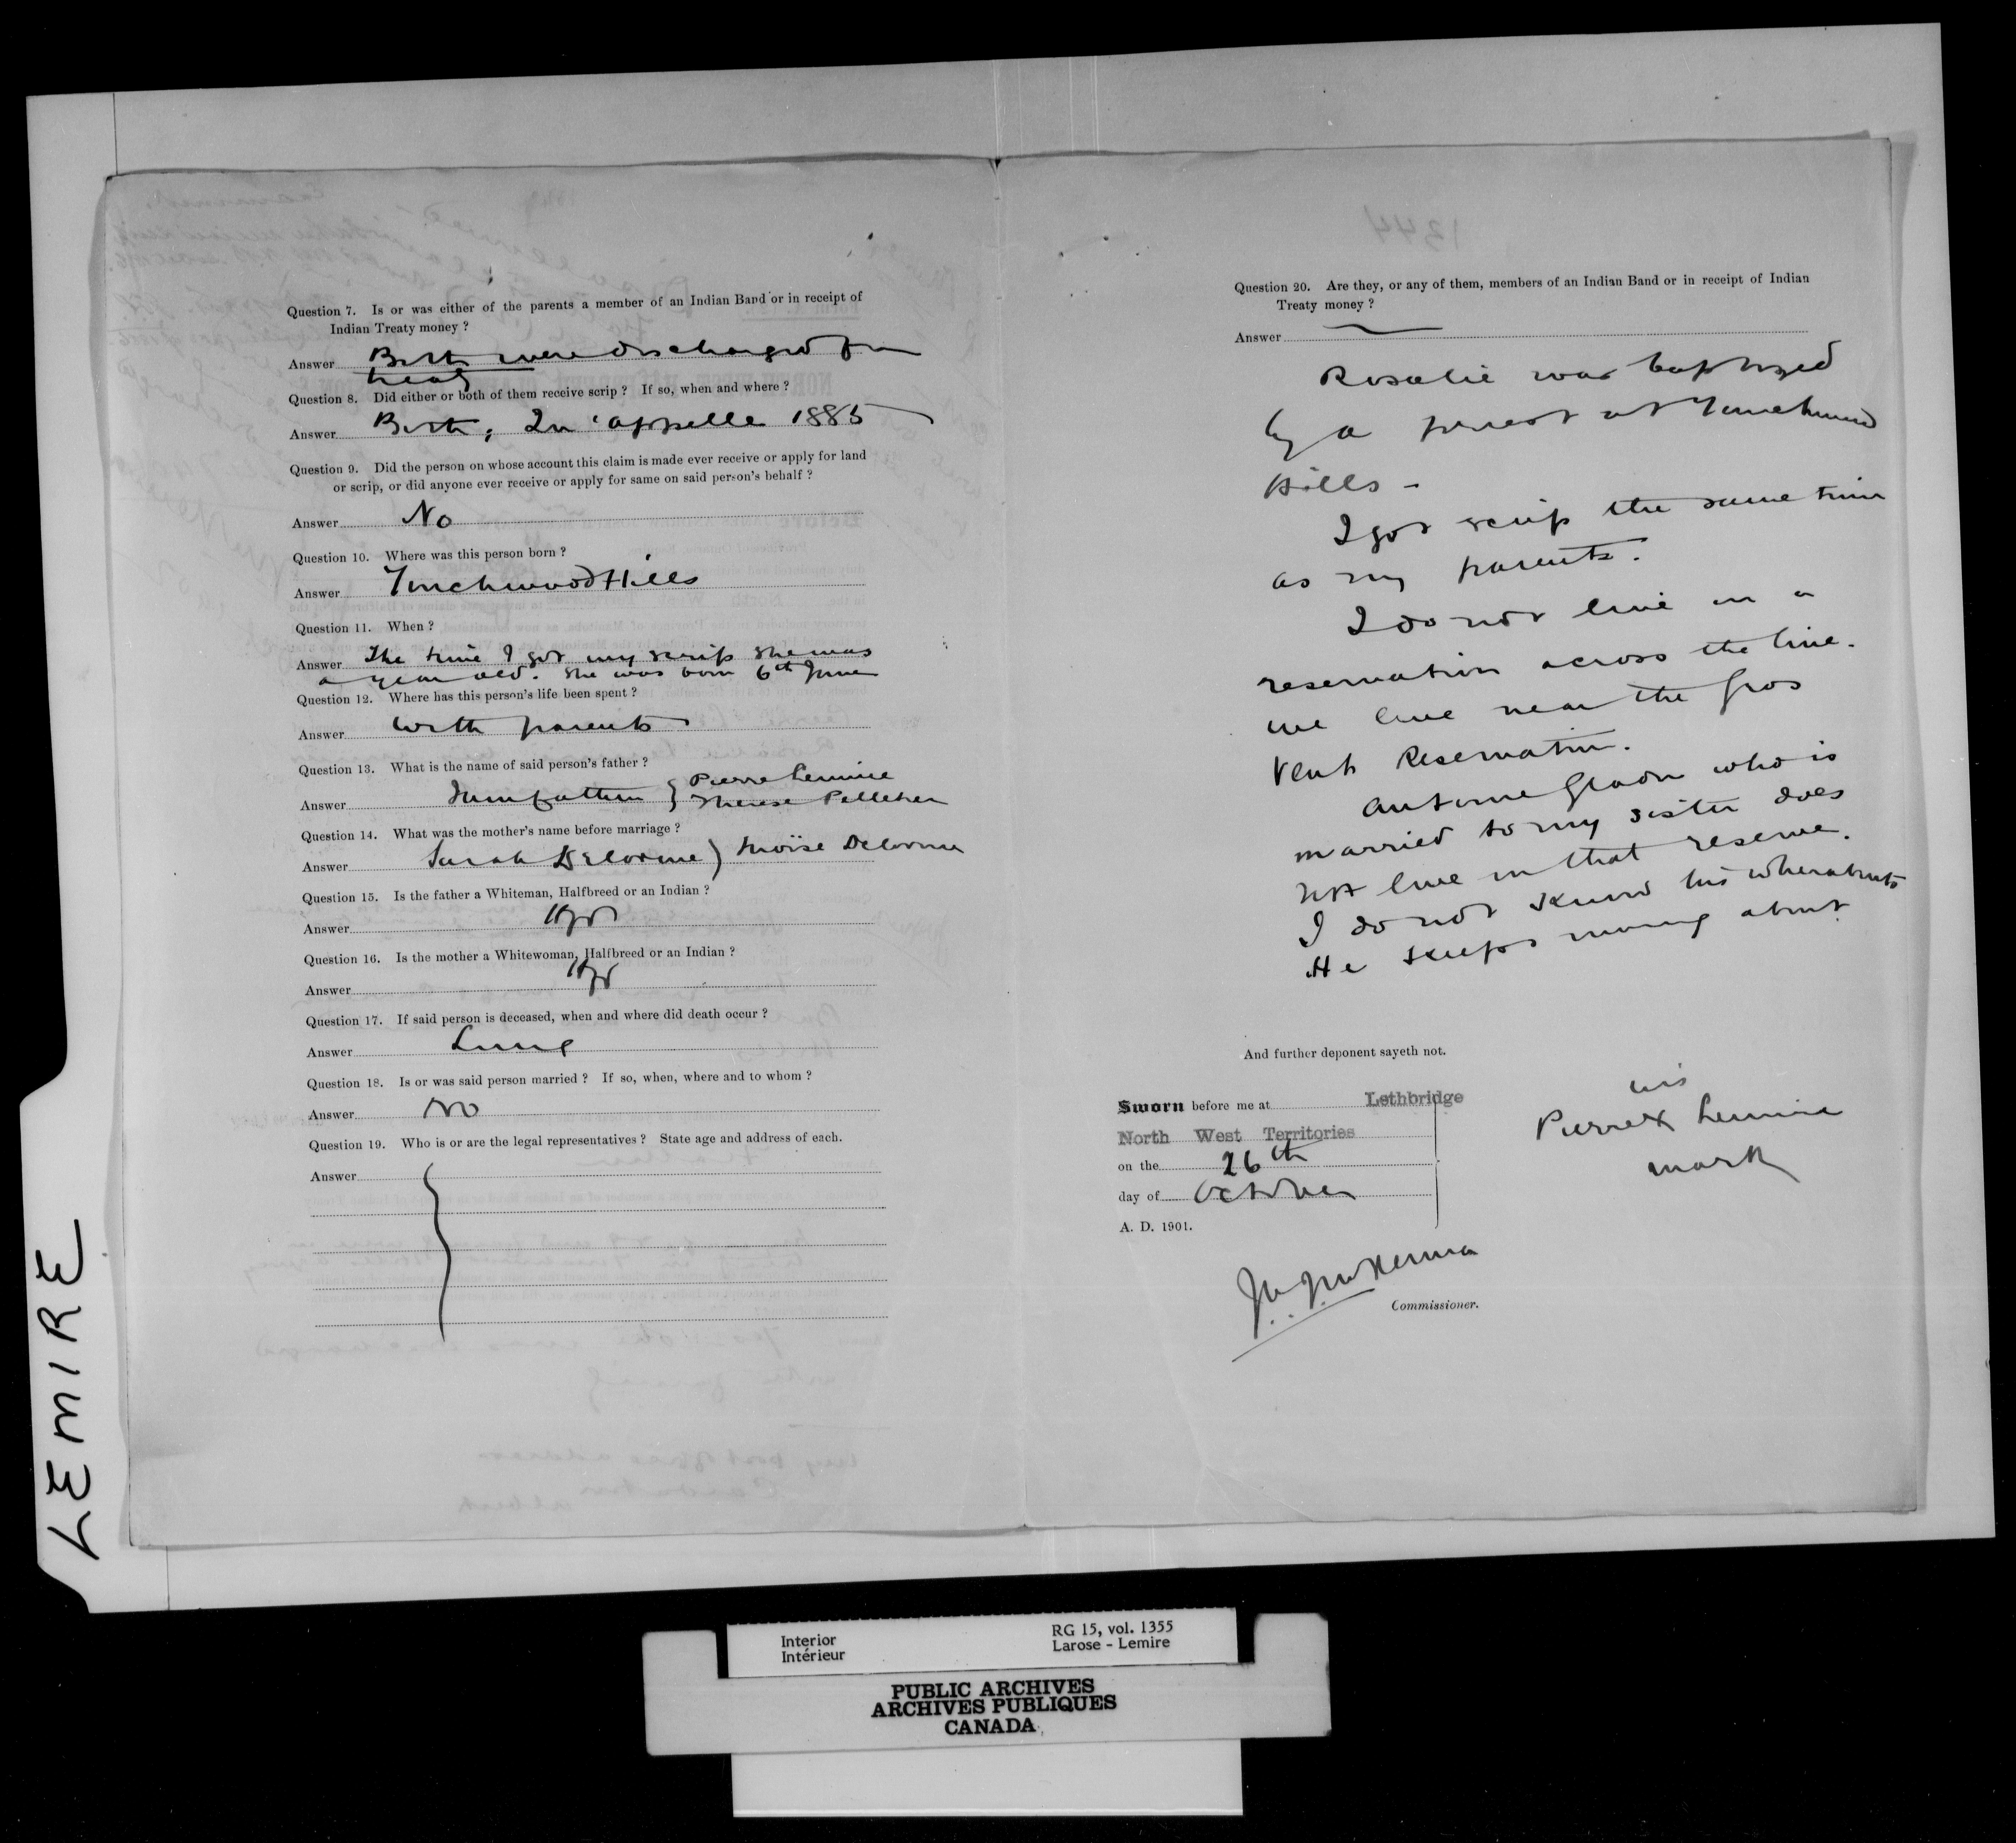 Question 7. Is or was either of the parents a member of an Indian Band or in receipt of
Indian Treaty money ?
Answer Both were discharged from
treaty
Question 8. Did either or both of them receive scrip ? If so, when and where ?
Answer Both, Qu'appelle 1885
Question 9. Did the person on whose account this claim is made ever receive or apply for land
or scrip, or did anyone ever receive or apply for same on said person's behalf ?
Answer No
Question 10. Where was this person born ?
Answer Touchwood Hills
Question 11. When ?
Answer The time I got my scrip she was
a year old. She was born 6th June
Question 12. Where has this person's life been spent ?
Answer With parents
Question 13. What is the name of said person's father ?
Answer } Pierre Lemire
Therese Pelletier
Question 14. What was the mother's name before marriage ?
Answer Sarah Delorme ) Moïse Delorme
Question 15. Is the father a Whiteman, Halfbreed or an Indian ?
Answer Hfbd
Question 16. Is the mother a Whitewoman, Halfbreed or an Indian ?
Answer Hfbd
Question 17. If said person is deceased, when and where did death occur ?
Answer Living
Question 18. Is or was said person married ? If so, when, where and to whom ?
Answer No
Question 19. Who is or are the legal representatives ? State age and address of each.
Answer
Question 20. Are they, or any of them, members of an Indian Band or in receipt of Indian
Treaty money ?
Answer
Rosalie was baptized
by a priest at Touchwood
Hills -
I got scrip the same time
as my parents.
I do not live on a
reservation across the line.
We live near the Gros
Vent Reservation.
Antoine Gladu who is
married to my sister does
not live on that reserve.
I do not know his whereabouts
He keeps moving about.
And further deponent sayeth not.
Sworn before me at Lethbridge
North West Territories
on the 26th
day of October
A. D. 1901.
his
Pierre X Lemire
mark
J. A. J. McKenna
Commissioner.
LEMIRE
Interior
Intérieur
RG 15, vol. 1355
Larose - Lemire
PUBLIC ARCHIVES
ARCHIVES PUBLIQUES
CANADA